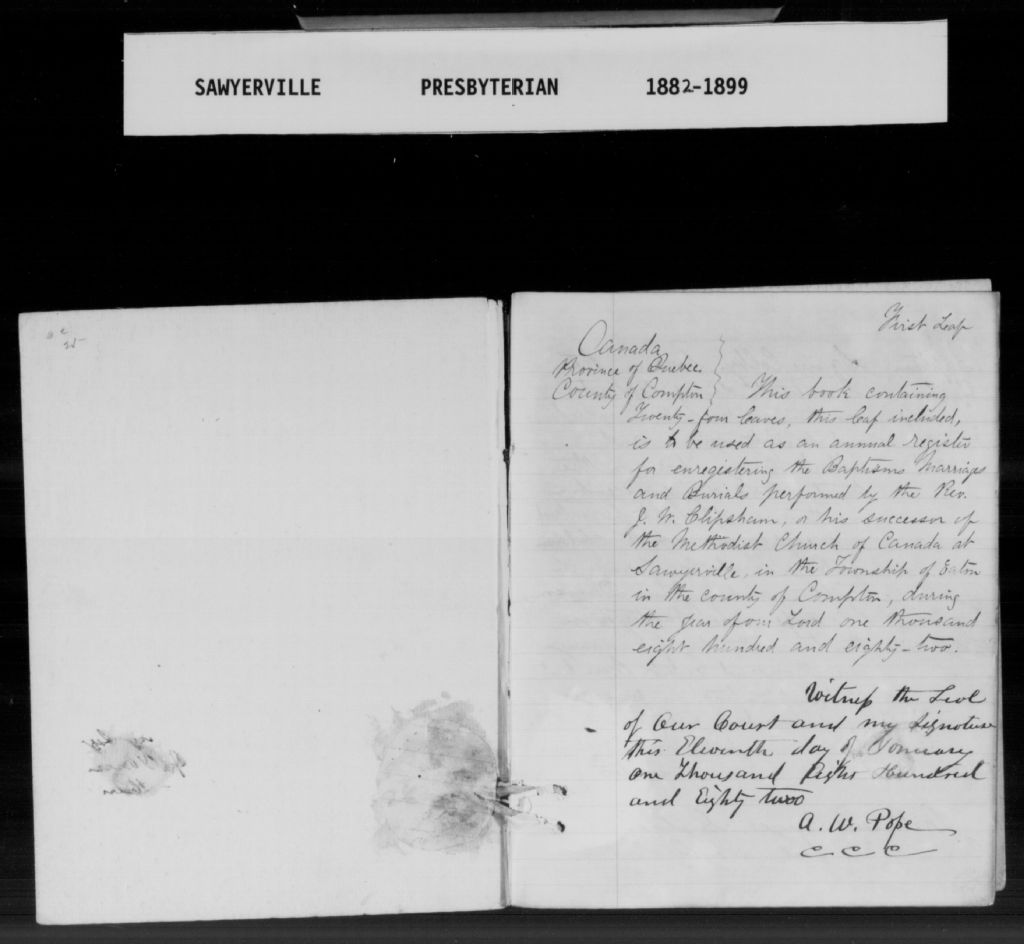 SAWYERVILLE PRESBYTERIAN 1882-1899
First Leaf
Canada
Province of Quebec
County of Compton } This book containing
Twenty-four leaves, this leaf included,
is to be used as an annual register
for enregistering the Baptisms Marriages
and Burials performed by the Rev.
J. W. Clipsham, or his successor of
the Methodist Church of Canada at
Sawyerville, in the Township of Eaton
in the county of Compton, during
the year of our Lord one thousand
eight hundred and eighty-two.
Witness the Seal
of Our Court and my Signature
this Eleventh day of January
One Thousand Eight Hundred
and Eighty two
A. W. Pope
C C C